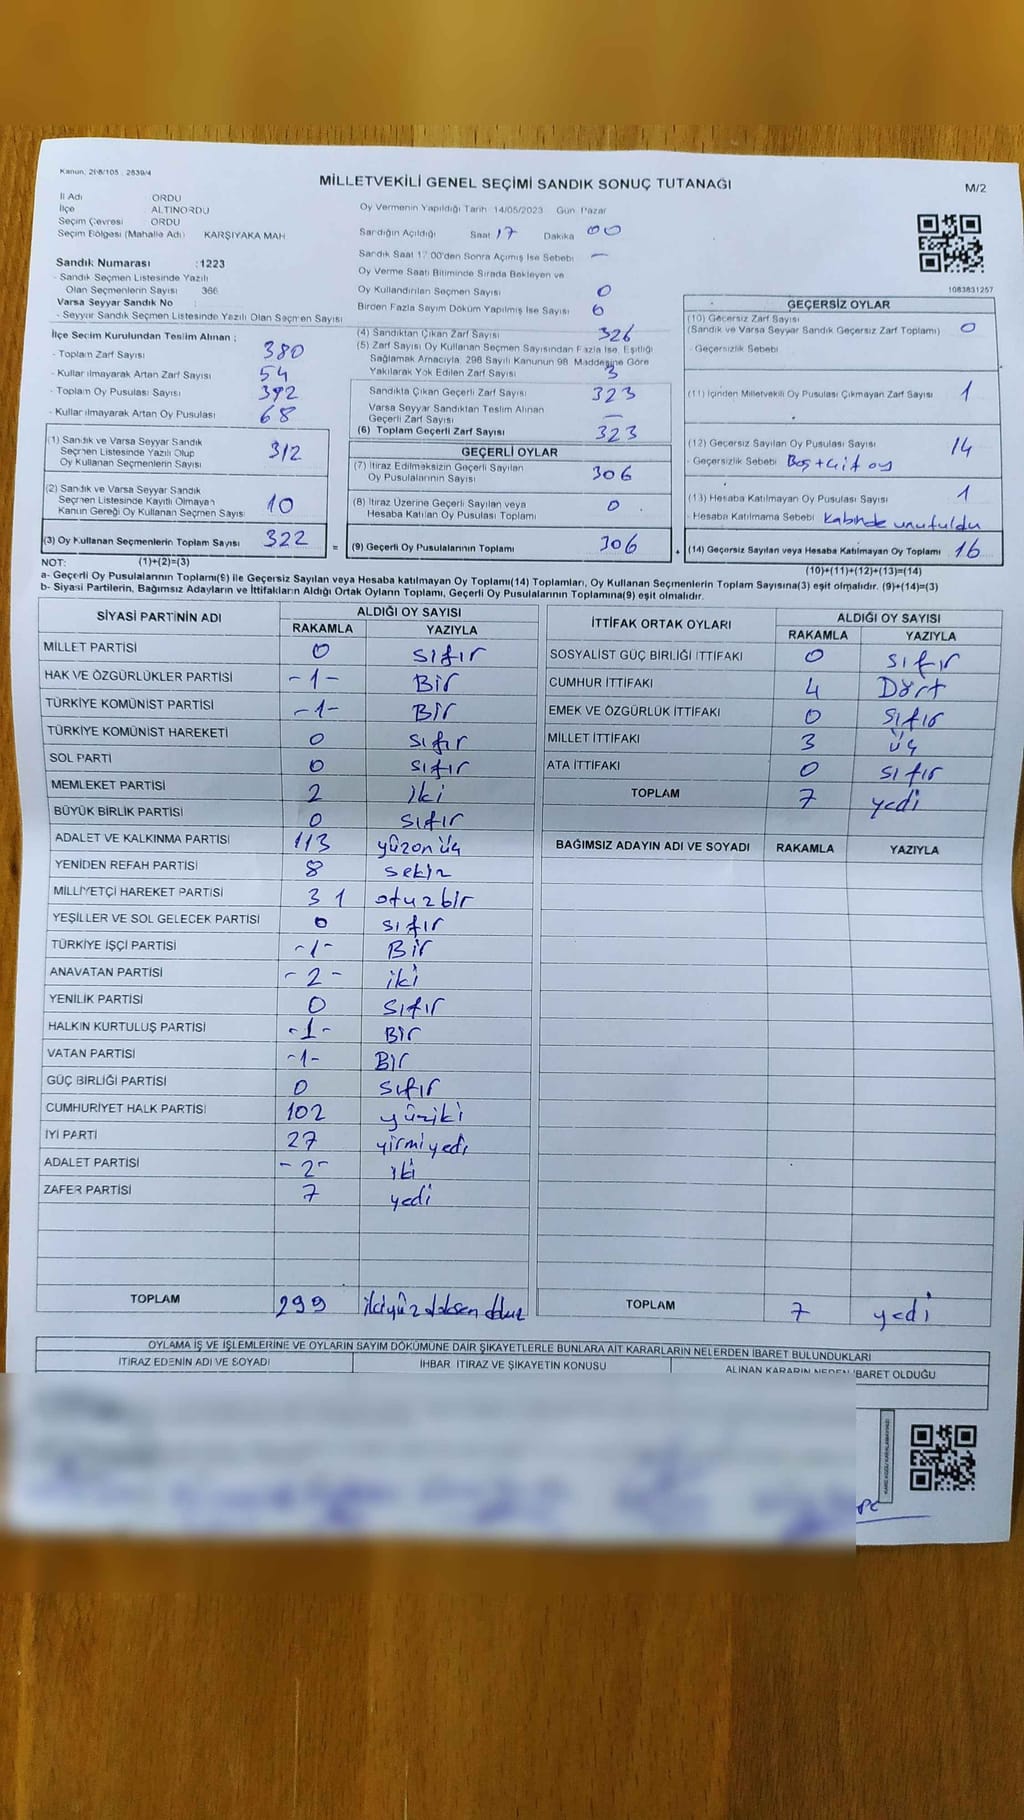 Kanun, 2839/4
MİLLETVEKİLİ GENEL SEÇİMİ SANDIK SONUÇ TUTANAĞI
M/2
İl Adı ORDU
İlçe ALTINORDU
Seçim Çevresi ORDU
Seçim Bölgesi (Mahalle Adı) KARŞIYAKA MAH
Oy Vermenin Yapıldığı Tarih 14/05/2023 Gün Pazar
Sandığın Açıldığı Saat 17 Dakika 00
Sandık Saat 17 00'den Sonra Açılmış İse Sebebi —
Oy Verme Saati Bitiminde Sırada Bekleyen ve
Oy Kullandırılan Seçmen Sayısı 0
Birden Fazla Sayım Döküm Yapılmış İse Sayısı
Sandık Numarası :1223
- Sandık Seçmen Listesinde Yazılı
Olan Seçmenlerin Sayısı 366
Varsa Seyyar Sandık No
- Seyyar Sandık Seçmen Listesinde Yazılı Olan Seçmen Sayısı
1083831257
İlçe Seçim Kurulundan Teslim Alınan ;
- Toplam Zarf Sayısı 380
- Kullanılmayarak Artan Zarf Sayısı 54
- Toplam Oy Pusulası Sayısı 392
- Kullanılmayarak Artan Oy Pusulası 68
(1) Sandık ve Varsa Seyyar Sandık
Seçmen Listesinde Yazılı Olup
Oy Kullanan Seçmenlerin Sayısı 312
(2) Sandık ve Varsa Seyyar Sandık
Seçmen Listesinde Kayıtlı Olmayan
Kanun Gereği Oy Kullanan Seçmen Sayısı 10
(3) Oy Kullanan Seçmenlerin Toplam Sayısı 322
(4) Sandıktan Çıkan Zarf Sayısı 326
(5) Zarf Sayısı Oy Kullanan Seçmen Sayısından Fazla İse, Eşitliği
Sağlamak Amacıyla, 298 Sayılı Kanunun 98. Maddesine Göre
Yakılarak Yok Edilen Zarf Sayısı 3
Sandıkta Çıkan Geçerli Zarf Sayısı 323
Varsa Seyyar Sandıktan Teslim Alınan
Geçerli Zarf Sayısı —
(6) Toplam Geçerli Zarf Sayısı 323
GEÇERLİ OYLAR
(7) İtiraz Edilmeksizin Geçerli Sayılan
Oy Pusulalarının Sayısı 306
(8) İtiraz Üzerine Geçerli Sayılan veya
Hesaba Katılan Oy Pusulası Toplamı 0
= (9) Geçerli Oy Pusulalarının Toplamı 306
GEÇERSİZ OYLAR
(10) Geçersiz Zarf Sayısı
(Sandık ve Varsa Seyyar Sandık Geçersiz Zarf Toplamı) 0
- Geçersizlik Sebebi
(11) İçinden Milletvekili Oy Pusulası Çıkmayan Zarf Sayısı 1
(12) Geçersiz Sayılan Oy Pusulası Sayısı 14
- Geçersizlik Sebebi Boş+Çift oy
(13) Hesaba Katılmayan Oy Pusulası Sayısı 1
- Hesaba Katılmama Sebebi Kabinde unutuldu
+ (14) Geçersiz Sayılan veya Hesaba Katılmayan Oy Toplamı 16
NOT: (1)+(2)=(3)
(10)+(11)+(12)+(13)=(14)
a- Geçerli Oy Pusulalarının Toplamı(9) ile Geçersiz Sayılan veya Hesaba katılmayan Oy Toplamı(14) Toplamları, Oy Kullanan Seçmenlerin Toplam Sayısına(3) eşit olmalıdır. (9)+(14)=(3)
b- Siyasi Partilerin, Bağımsız Adayların ve İttifakların Aldığı Ortak Oyların Toplamı, Geçerli Oy Pusulalarının Toplamına(9) eşit olmalıdır.
SİYASİ PARTİNİN ADI ALDIĞI OY SAYISI
RAKAMLA YAZIYLA
MİLLET PARTİSİ 0 sıfır
HAK VE ÖZGÜRLÜKLER PARTİSİ -1- Bir
TÜRKİYE KOMÜNİST PARTİSİ -1- Bir
TÜRKİYE KOMÜNİST HAREKETİ 0 sıfır
SOL PARTİ 0 sıfır
MEMLEKET PARTİSİ 2 iki
BÜYÜK BİRLİK PARTİSİ 0 sıfır
ADALET VE KALKINMA PARTİSİ 113 yüzonüç
YENİDEN REFAH PARTİSİ 8 sekiz
MİLLİYETÇİ HAREKET PARTİSİ 31 otuzbir
YEŞİLLER VE SOL GELECEK PARTİSİ 0 sıfır
TÜRKİYE İŞÇİ PARTİSİ -1- Bir
ANAVATAN PARTİSİ -2- iki
YENİLİK PARTİSİ 0 sıfır
HALKIN KURTULUŞ PARTİSİ -1- Bir
VATAN PARTİSİ -1- Bir
GÜÇ BİRLİĞİ PARTİSİ 0 sıfır
CUMHURİYET HALK PARTİSİ 102 yüziki
İYİ PARTİ 27 yirmiyedi
ADALET PARTİSİ -2- iki
ZAFER PARTİSİ 7 yedi
TOPLAM 299 ikiyüzdoksendokuz
İTTİFAK ORTAK OYLARI ALDIĞI OY SAYISI
RAKAMLA YAZIYLA
SOSYALİST GÜÇ BİRLİĞİ İTTİFAKI 0 sıfır
CUMHUR İTTİFAKI 4 Dört
EMEK VE ÖZGÜRLÜK İTTİFAKI 0 sıfır
MİLLET İTTİFAKI 3 üç
ATA İTTİFAKI 0 sıfır
TOPLAM 7 yedi
BAĞIMSIZ ADAYIN ADI VE SOYADI RAKAMLA YAZIYLA
TOPLAM 7 yedi
OYLAMA İŞ VE İŞLEMLERİNE VE OYLARIN SAYIM DÖKÜMÜNE DAİR ŞİKAYETLERLE BUNLARA AİT KARARLARIN NELERDEN İBARET BULUNDUKLARI
İTİRAZ EDENİN ADI VE SOYADI İHBAR İTİRAZ VE ŞİKAYETİN KONUSU ALINAN KARARIN NEDEN İBARET OLDUĞU